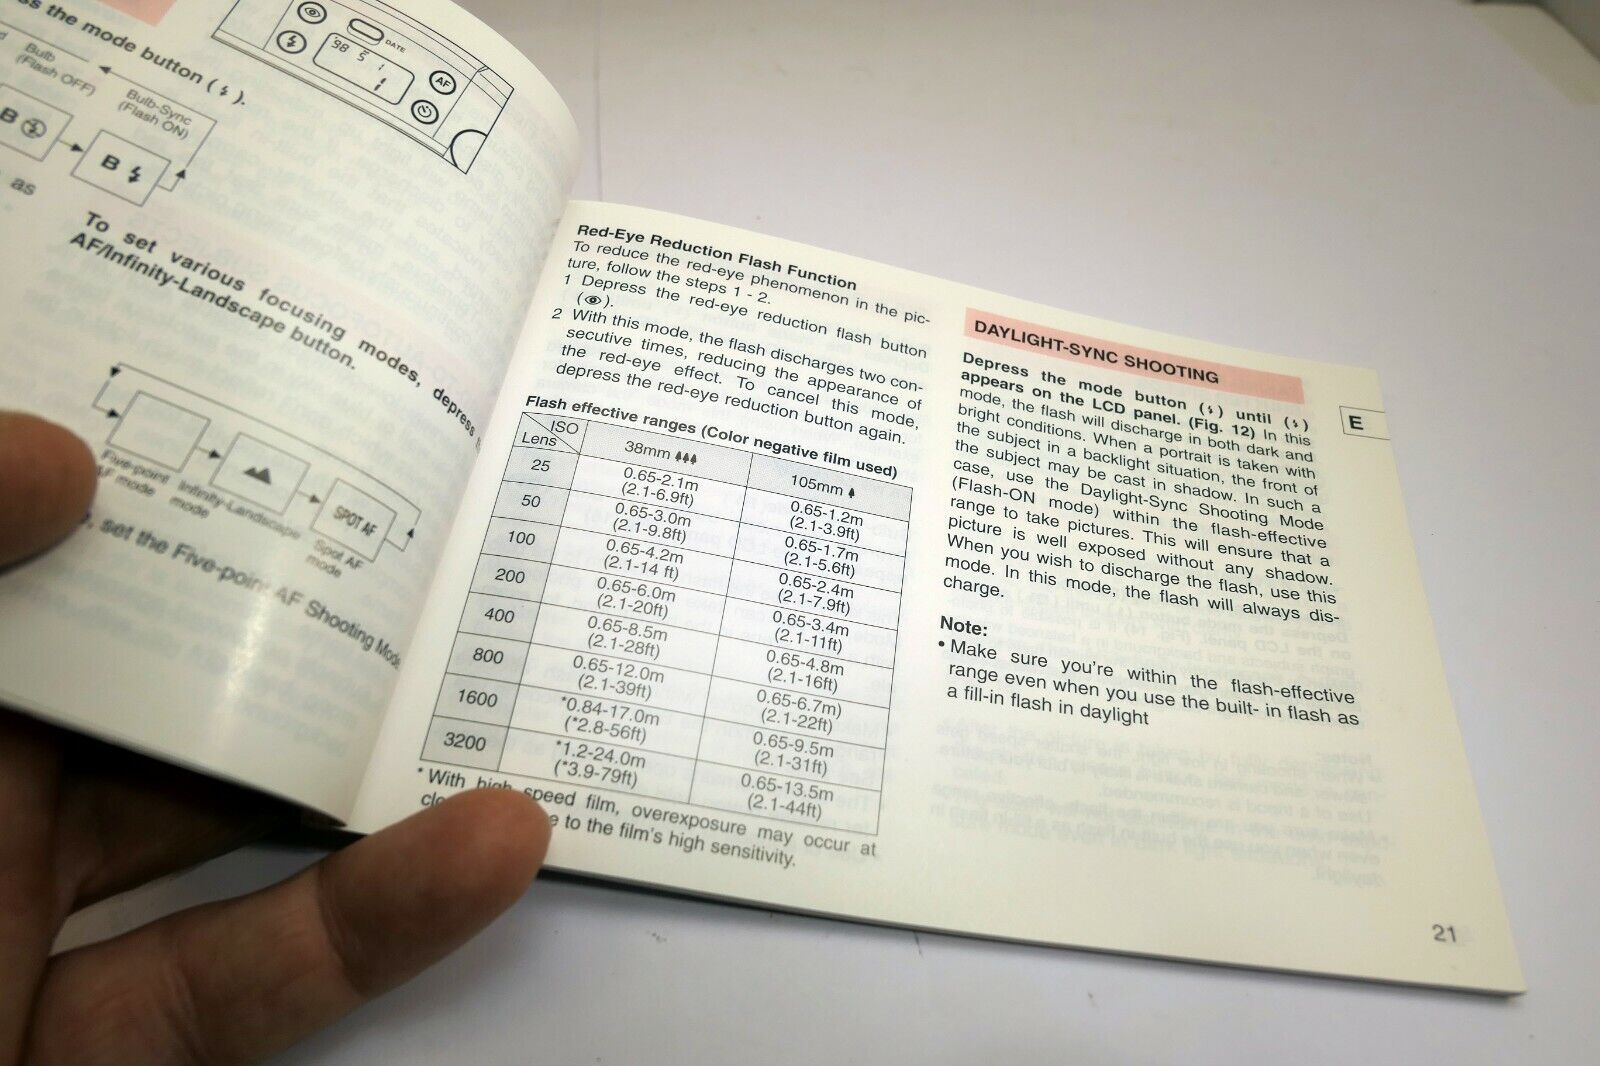 ss the mode button ( ).
Bulb
(Flash OFF)
Bulb-Sync
(Flash ON)
B
B
as
DATE
'98 5 1
1
AF
To set various focusing modes, depress
AF/Infinity-Landscape button.
Five-point
AF mode
Infinity-Landscape
mode
SPOT AF
Spot AF
mode
set the Five-point AF Shooting Mode
Red-Eye Reduction Flash Function
To reduce the red-eye phenomenon in the pic-
ture, follow the steps 1 - 2.
1 Depress the red-eye reduction flash button
( ).
2 With this mode, the flash discharges two con-
secutive times, reducing the appearance of
the red-eye effect. To cancel this mode,
depress the red-eye reduction button again.
Flash effective ranges (Color negative film used)
ISO
Lens
38mm
105mm
25
0.65-2.1m
(2.1-6.9ft)
0.65-1.2m
(2.1-3.9ft)
50
0.65-3.0m
(2.1-9.8ft)
0.65-1.7m
(2.1-5.6ft)
100
0.65-4.2m
(2.1-14 ft)
0.65-2.4m
(2.1-7.9ft)
200
0.65-6.0m
(2.1-20ft)
0.65-3.4m
(2.1-11ft)
400
0.65-8.5m
(2.1-28ft)
0.65-4.8m
(2.1-16ft)
800
0.65-12.0m
(2.1-39ft)
0.65-6.7m)
(2.1-22ft)
1600
*0.84-17.0m
(*2.8-56ft)
0.65-9.5m
(2.1-31ft)
3200
*1.2-24.0m
(*3.9-79ft)
0.65-13.5m
(2.1-44ft)
* With high speed film, overexposure may occur at
to the film's high sensitivity.
DAYLIGHT-SYNC SHOOTING
Depress the mode button ( ) until ( )
appears on the LCD panel. (Fig. 12) In this
mode, the flash will discharge in both dark and
bright conditions. When a portrait is taken with
the subject in a backlight situation, the front of
the subject may be cast in shadow. In such a
case, use the Daylight-Sync Shooting Mode
(Flash-ON mode) within the flash-effective
range to take pictures. This will ensure that a
picture is well exposed without any shadow.
When you wish to discharge the flash, use this
mode. In this mode, the flash will always dis-
charge.
Note:
• Make sure you're within the flash-effective
range even when you use the built- in flash as
a fill-in flash in daylight
E
21